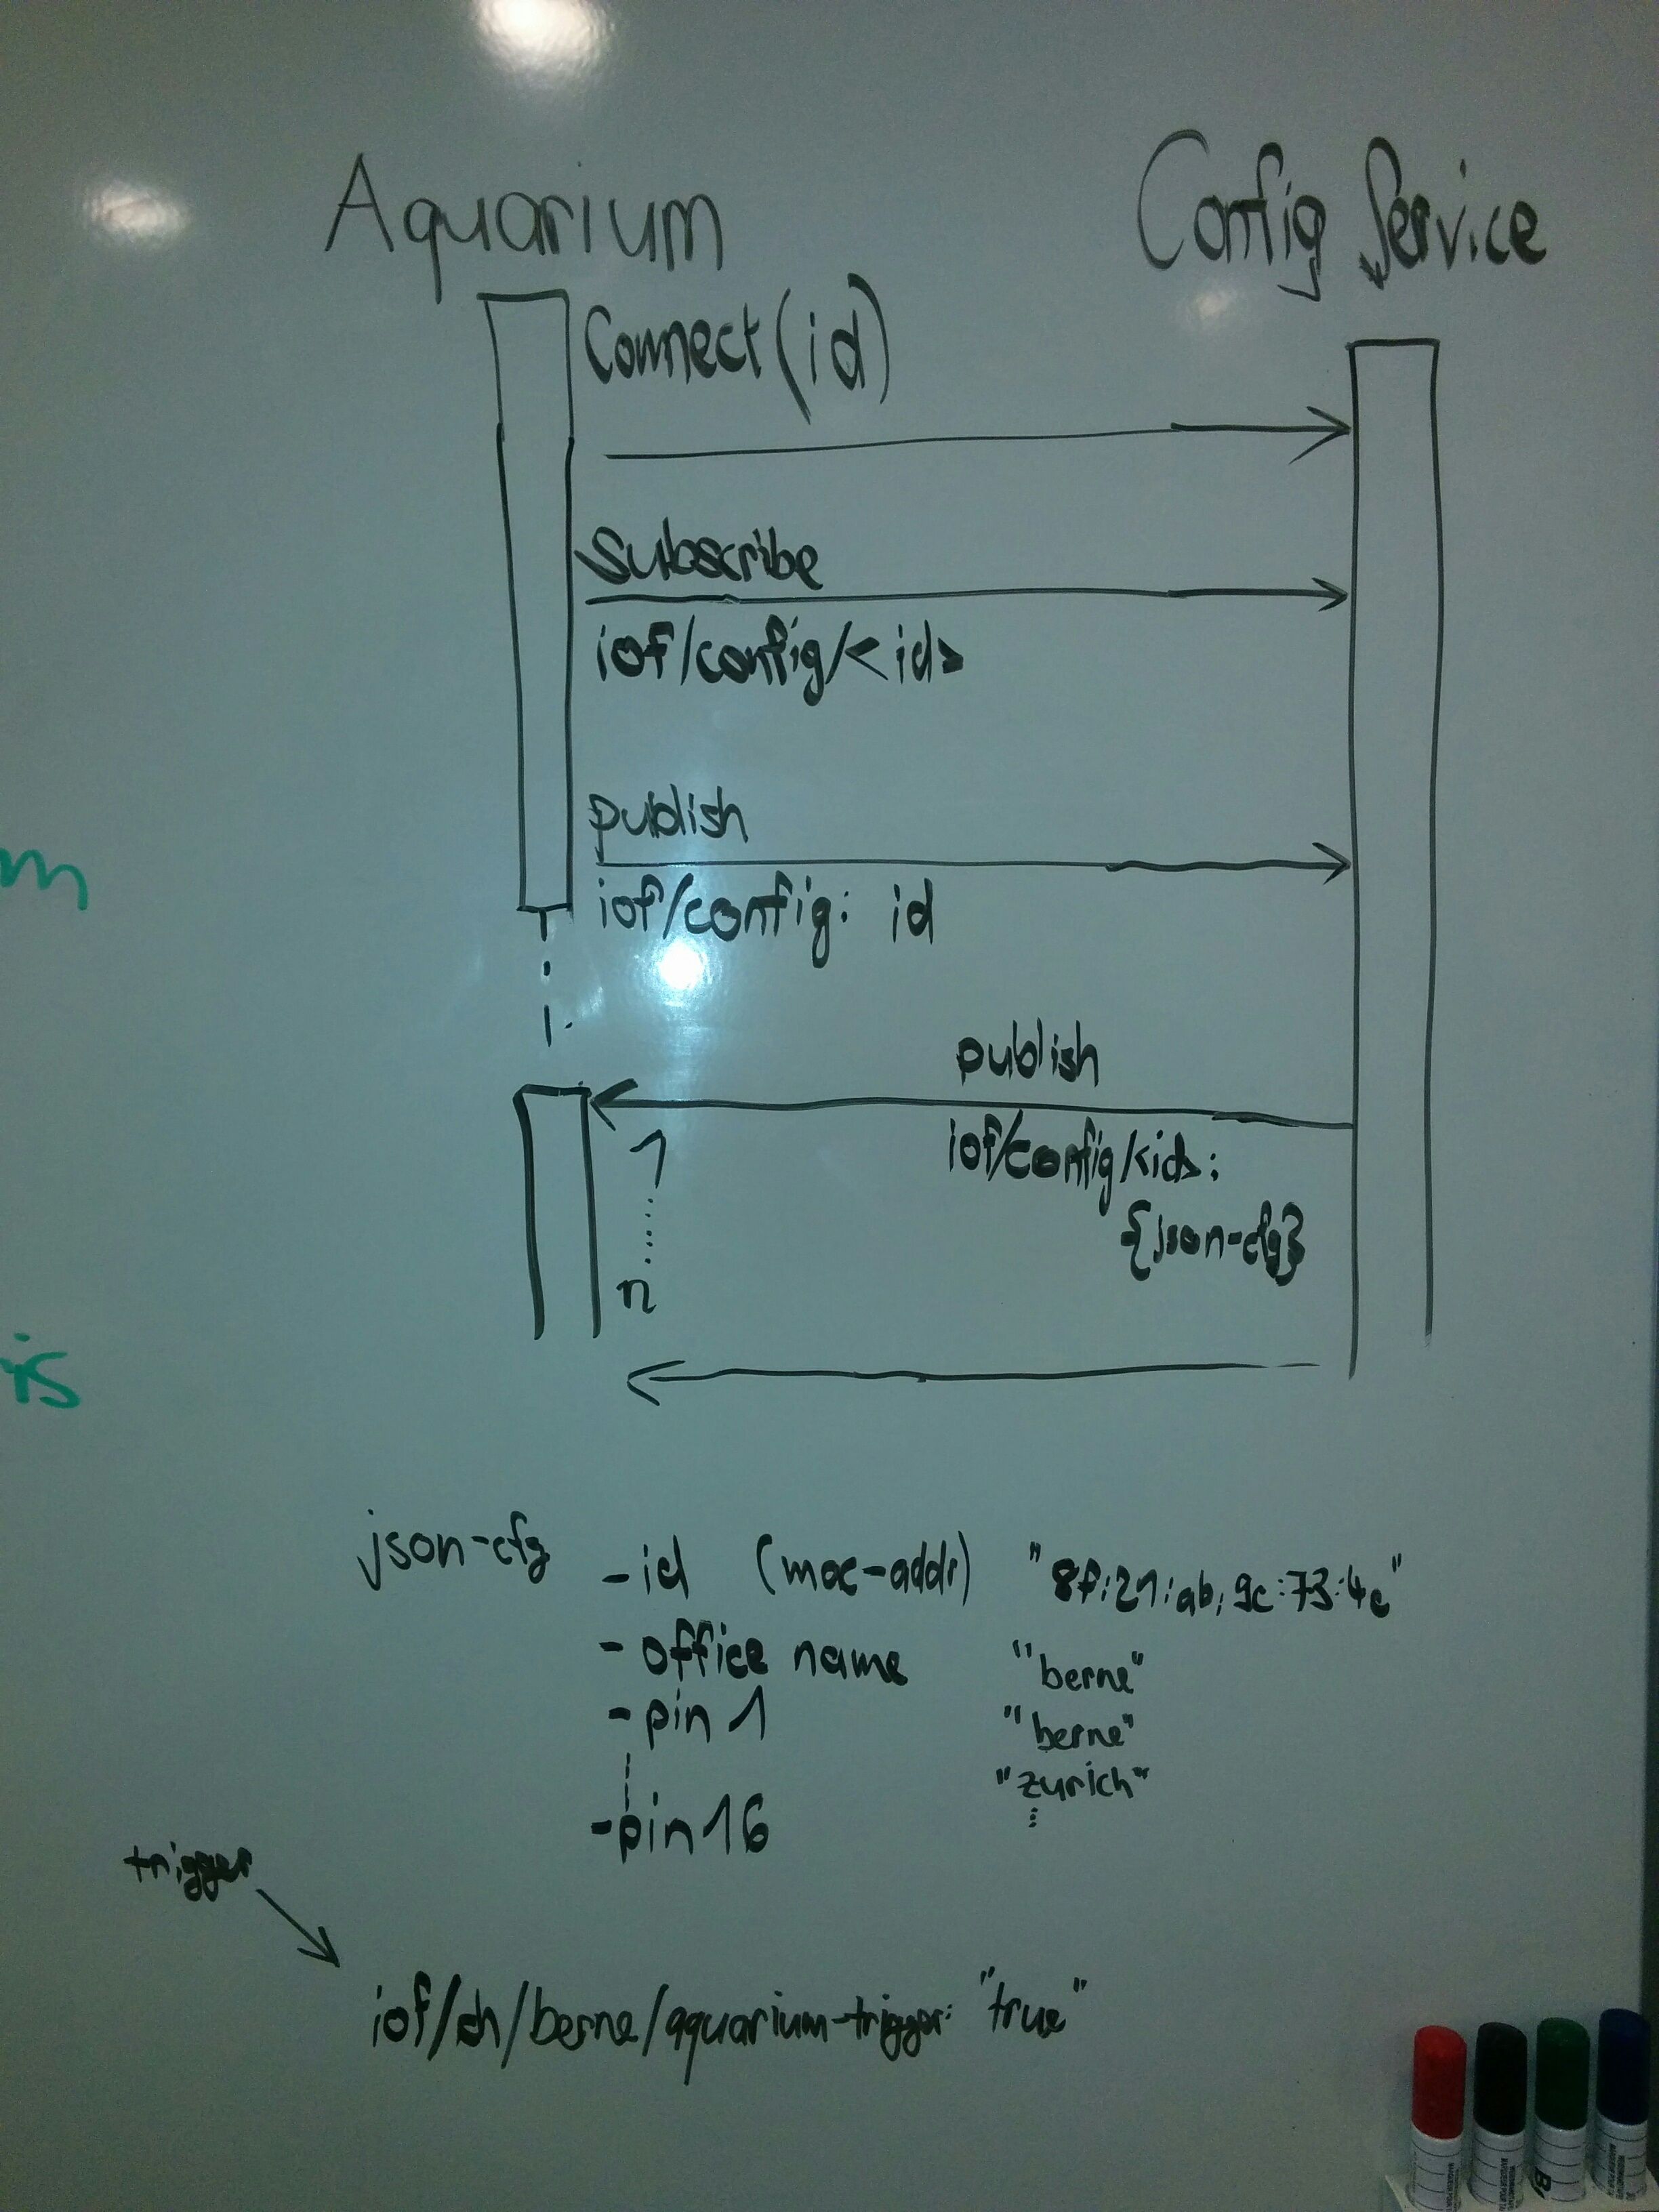 Aquarium
Config Service
Connect (id)
Subscribe
iof/config/<id>
publish
m
iof/config: id
publish
iof/config/<id>:
1
{json-cfg}
n
is
json-cfg
-id (mac-addr) "8f:21:ab:9c:73:4e"
- office name "berne"
- pin 1 "berne"
"zurich"
-pin 16
trigger
iof/ch/berne/aquarium-trigger: "true"